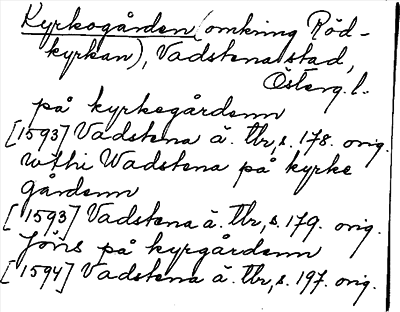 Kyrkogården (omkring Röd-
kyrkan), Vadstena stad,
Österg. l.
på kyrkegårdenn
[1593] Vadstena ä. Tbr, s. 178. orig.
wthi Wadstena på kyrke
gårdenn
[1593] Vadstena ä. Tbr, s. 179. orig.
Jöns på kyrgårdenn
[1594] Vadstena ä. Tbr, s. 197. orig.